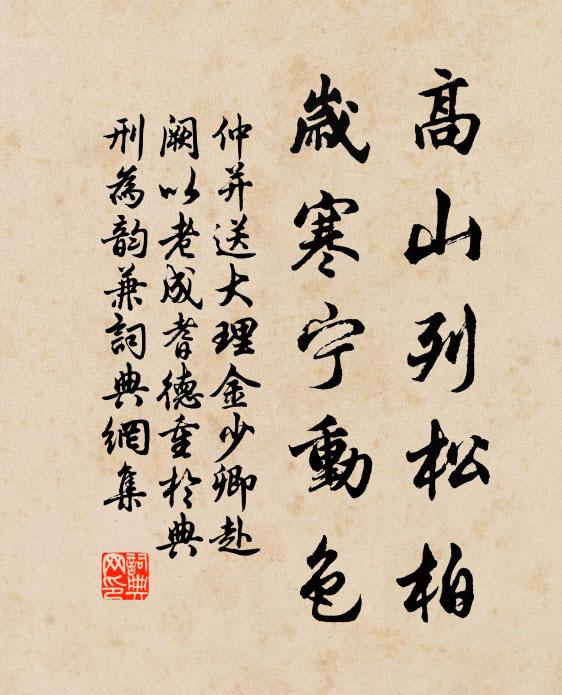 高山列松柏
歲寒宁動色
仲并送大理金少卿赴
闕以老成耆德重於典
刑為韵兼詞典網集
詞典网印